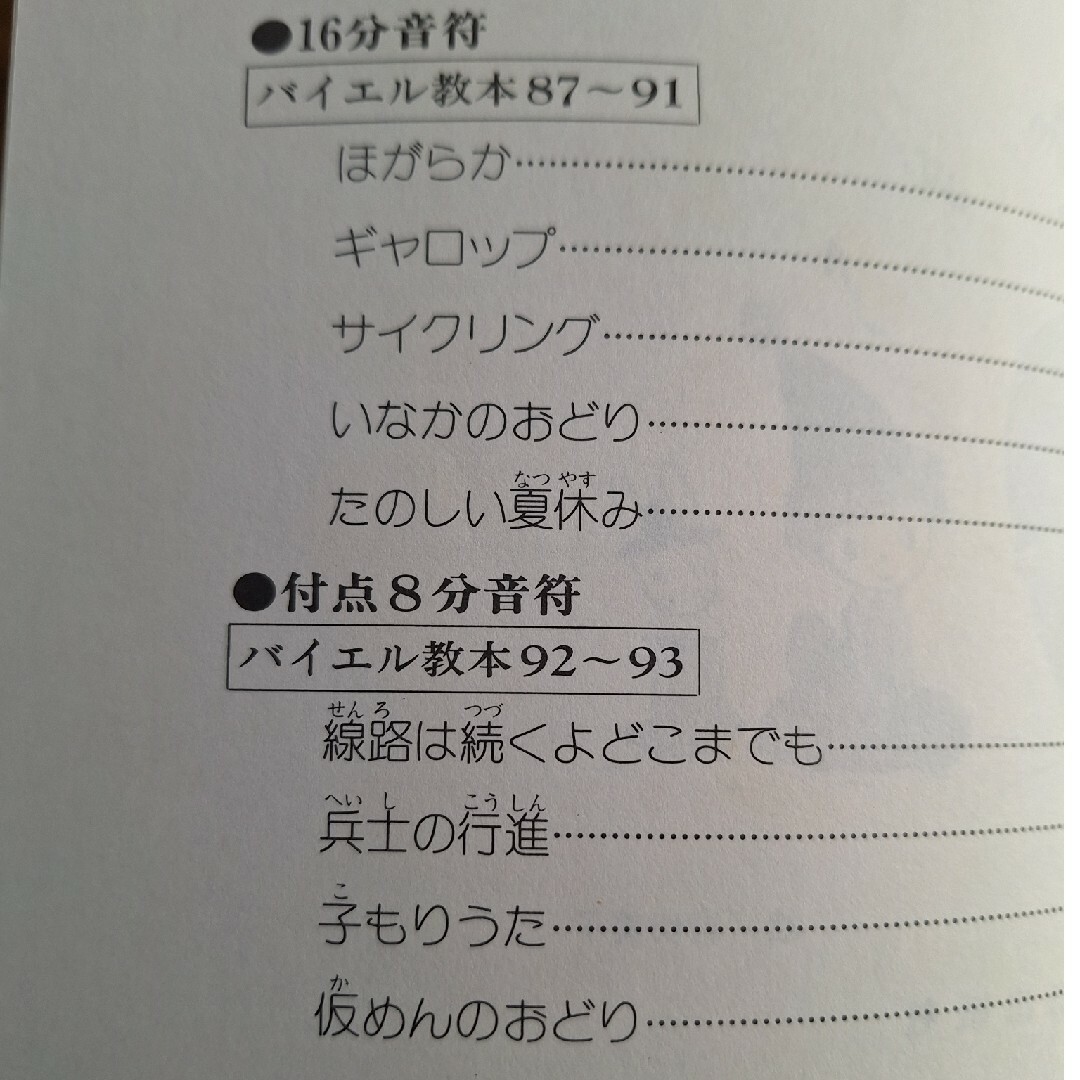 ●16分音符
バイエル教本87〜91
ほがらか
ギャロップ
サイクリング
いなかのおどり
なつ やす
たのしい夏休み
●付点8分音符
バイエル教本92〜93
せん ろ つづ
線路は続くよどこまでも
へい し こう しん
兵士の行進
こ
子もりうた
か
仮めんのおどり